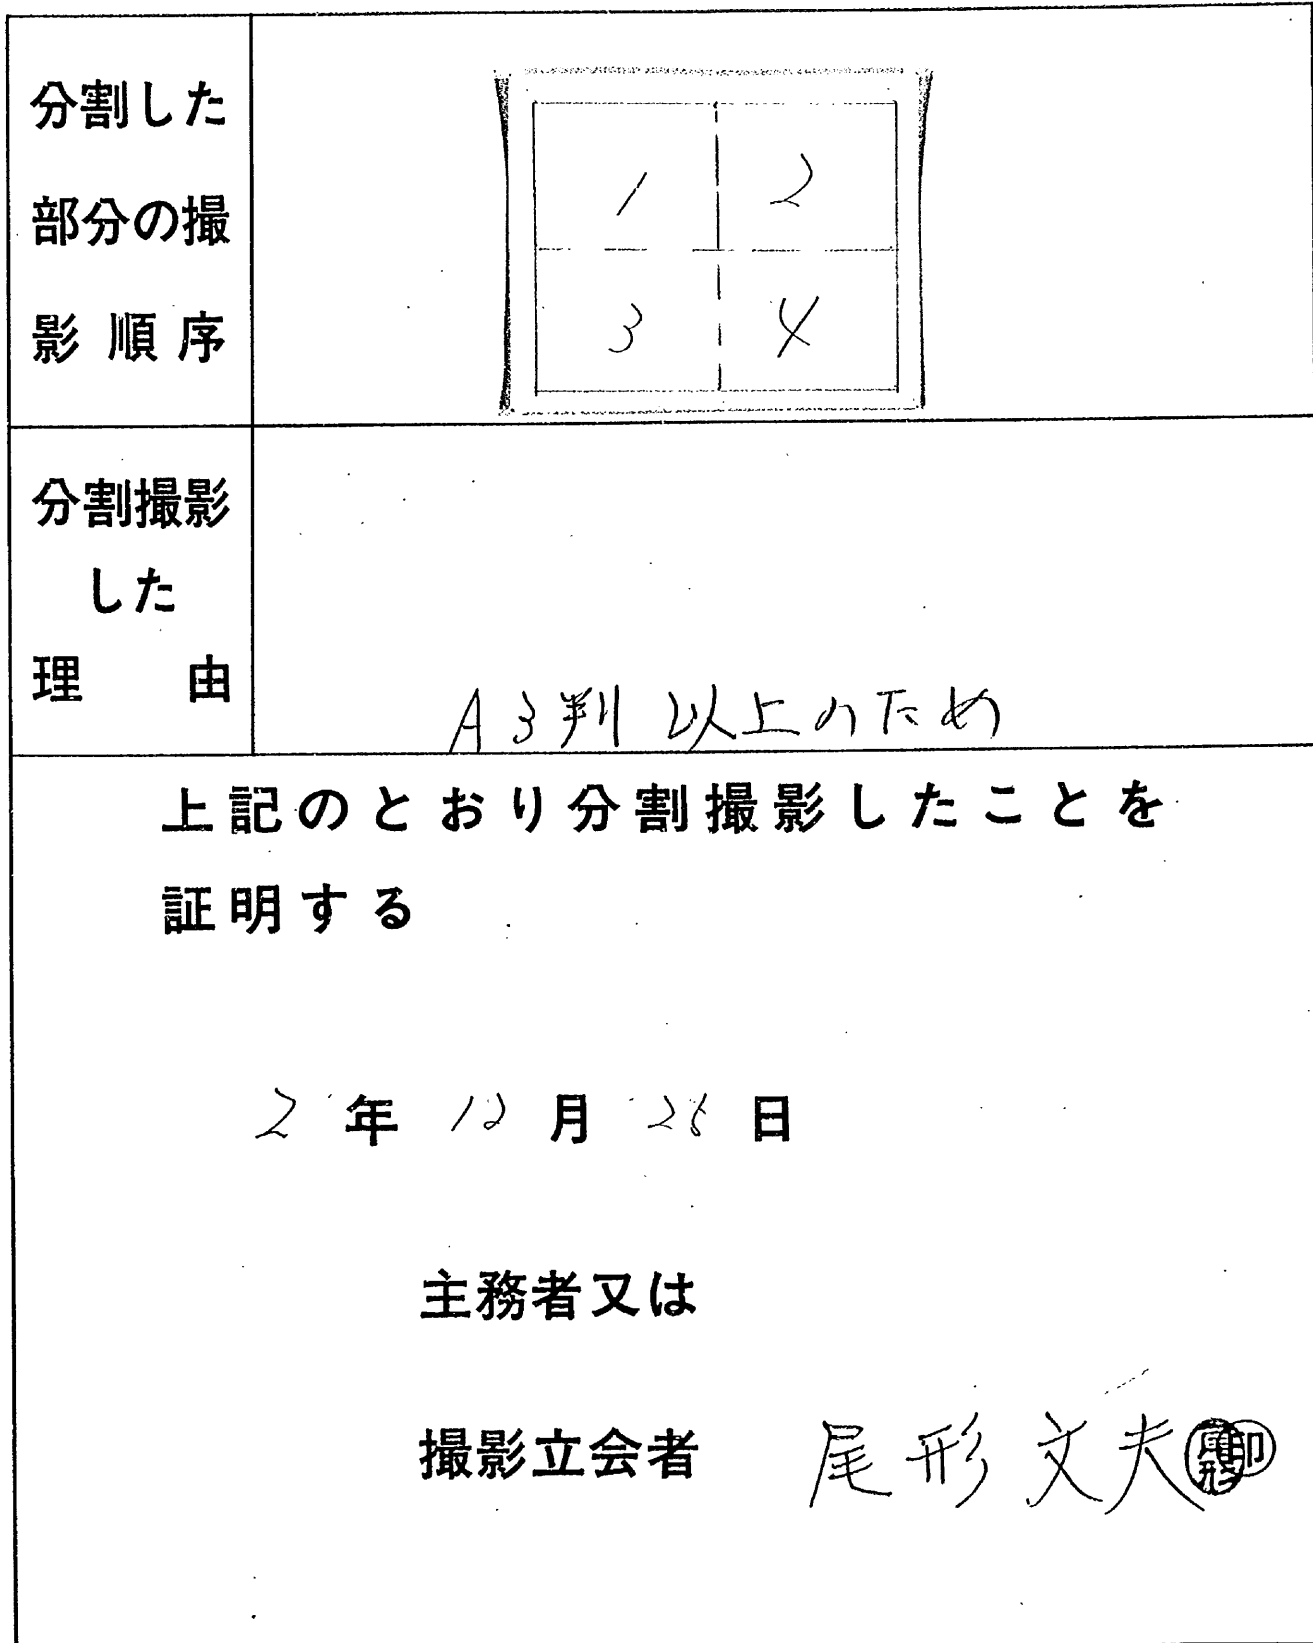 分割した
部分の撮
影順序
1 2
3 4
分割撮影
した
理由
A3判以上のため
上記のとおり分割撮影したことを
証明する
2年12月28日
主務者又は
撮影立会者 尾形文夫 尾形 印